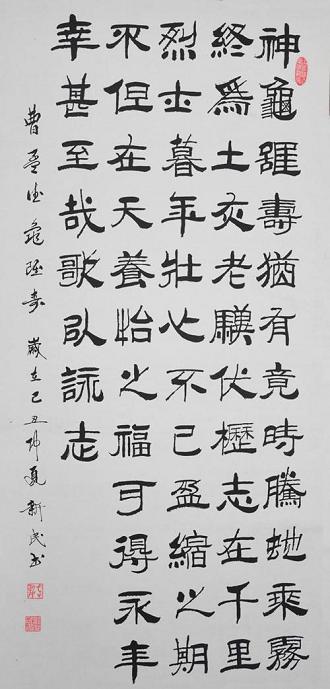 神龜雖壽猶有竟時騰虵乘霧
終爲土灰老驥伏櫪志在千里
烈士暮年壯心不已盈縮之期
不但在天養怡之福可得永年
幸甚至哉歌以詠志
曹孟德龜雖壽 歲在己丑仲夏新民書